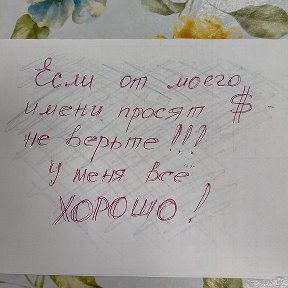 Если от моего
имени просят $
не верьте!!!
У меня всё
ХОРОШО!